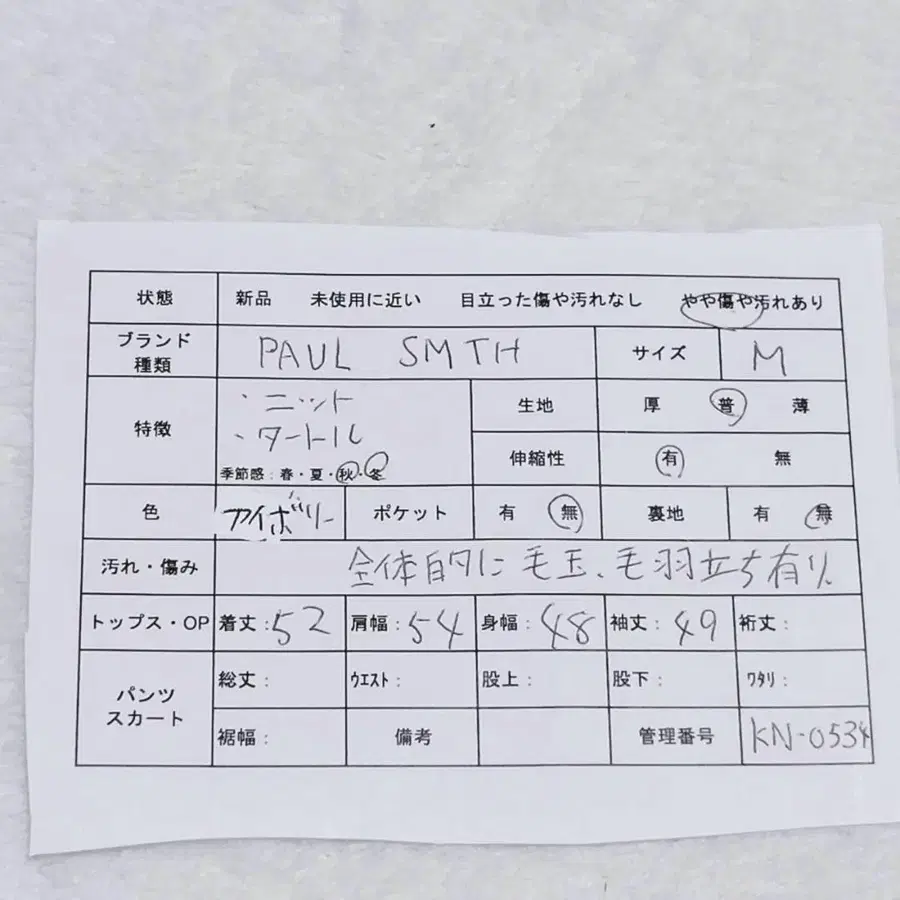 状態 新品 未使用に近い 目立った傷や汚れなし やや傷や汚れあり
ブランド
種類 PAUL SMTH サイズ M
特徴 ・ニット
・タートル
季節感：春・夏・秋・冬
生地 厚 普 薄
伸縮性 有 無
色 アイボリー ポケット 有 無 裏地 有 無
汚れ・傷み 全体的に毛玉、毛羽立ち有り
トップス・OP 着丈：52 肩幅：54 身幅：48 袖丈：49 裄丈：
パンツ
スカート
総丈： ｳｴｽﾄ： 股上： 股下： ﾜﾀﾘ：
裾幅： 備考 管理番号 KN-0534